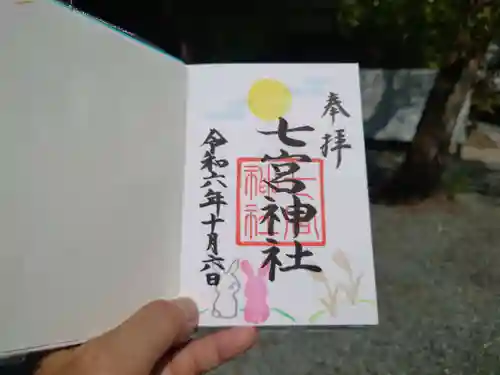 奉拝
七宮神社
令和六年十月六日
七宮神社